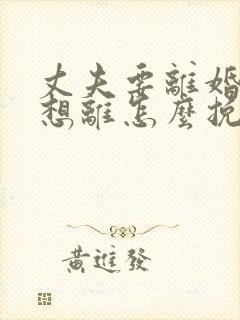 丈夫要離婚
想離怎麼挽
黃進發